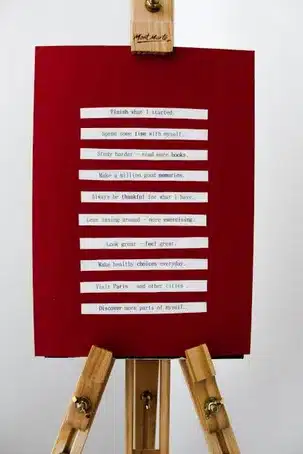 Mont Marte
Finish what I started.
Spend some time with myself.
Study harder - read more books.
Make a million good memories.
Always be thankful for what I have.
Less lazing around - more exercising.
Look great - feel great.
Make healthy choices everyday.
Visit Paris and other cities.
Discover more parts of myself.